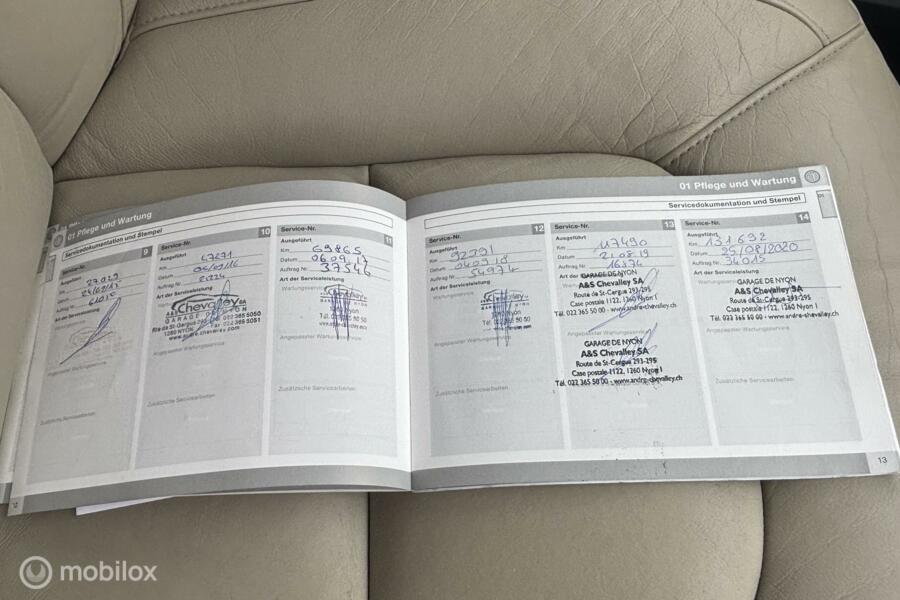 01 Pflege und Wartung
Servicedokumentation und Stempel
Service-Nr. 9
Ausgeführt
Km 27.029
Datum
Auftrag Nr.
Art der Serviceleistung
Angepasster Wartungsservice
Zusätzliche Servicearbeiten
Service-Nr. 10
Ausgeführt
Km
Datum 05/09/16
Auftrag Nr.
Art der Serviceleistung
A&S Chevalley SA
GARAGE DE NYON
1260 NYON Fax 022 365 5051
www.andre-chevalley.ch
Angepasster Wartungsservice
Zusätzliche Servicearbeiten
Service-Nr. 11
Ausgeführt
Km 69865
Datum 06.09.17
Auftrag Nr. 37546
Art der Serviceleistung
Wartungsservice
Angepasster Wartungsservice
Zusätzliche Servicearbeiten
01 Pflege und Wartung
Servicedokumentation und Stempel
Service-Nr. 12
Ausgeführt
Km 92791
Datum 04.09.18
Auftrag Nr. 54974
Art der Serviceleistung
Wartungsservice
Angepasster Wartungsservice
Zusätzliche Servicearbeiten
Service-Nr. 13
Ausgeführt
Km 117490
Datum 21.08.19
Auftrag Nr. 16574
Art der Serviceleistung
GARAGE DE NYON
A&S Chevalley SA
Route de St-Cergue 293-295
Case postale 1122, 1260 Nyon 1
Tél. 022 365 50 00 - www.andre-chevalley.ch
Angepasster Wartungsservice
GARAGE DE NYON
A&S Chevalley SA
Route de St-Cergue 293-295
Case postale 1122, 1260 Nyon 1
Tél. 022 365 50 00 - www.andre-chevalley.ch
Service-Nr. 14
Ausgeführt
Km 131692
Datum 25/08/2020
Auftrag Nr. 34015
Art der Serviceleistung
GARAGE DE NYON
A&S Chevalley SA
Route de St-Cergue 293-295
Case postale 1122, 1260 Nyon 1
Tél. 022 365 50 00 - www.andre-chevalley.ch
Angepasster Wartungsservice
Zusätzliche Servicearbeiten
13
mobilox